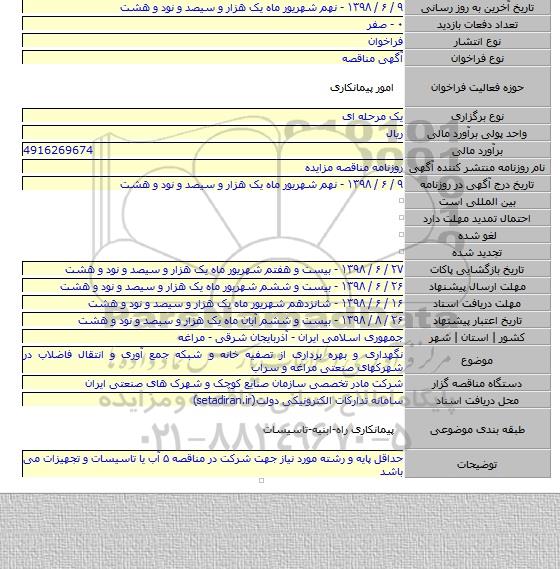 تاریخ آخرین به روز رسانی ۹ / ۶ / ۱۳۹۸ - نهم شهریور ماه یک هزار و سیصد و نود و هشت
تعداد دفعات بازدید ۰ - صفر
نوع انتشار فراخوان
نوع فراخوان آگهی مناقصه
حوزه فعالیت فراخوان امور پیمانکاری
نوع برگزاری یک مرحله ای
واحد پولی برآورد مالی ریال
برآورد مالی 4916269674
نام روزنامه منتشر کننده آگهی روزنامه مناقصه مزایده
تاریخ درج آگهی در روزنامه ۹ / ۶ / ۱۳۹۸ - نهم شهریور ماه یک هزار و سیصد و نود و هشت
بین المللی است
احتمال تمدید مهلت دارد
لغو شده
تجدید شده
تاریخ بازگشایی پاکات ۲۷ / ۶ / ۱۳۹۸ - بیست و هفتم شهریور ماه یک هزار و سیصد و نود و هشت
مهلت ارسال پیشنهاد ۲۶ / ۶ / ۱۳۹۸ - بیست و ششم شهریور ماه یک هزار و سیصد و نود و هشت
مهلت دریافت اسناد ۱۶ / ۶ / ۱۳۹۸ - شانزدهم شهریور ماه یک هزار و سیصد و نود و هشت
تاریخ اعتبار پیشنهاد ۲۶ / ۸ / ۱۳۹۸ - بیست و ششم آبان ماه یک هزار و سیصد و نود و هشت
کشور | استان | شهر جمهوری اسلامی ایران - آذربایجان شرقی - مراغه
موضوع نگهداری و بهره برداری از تصفیه خانه و شبکه جمع آوری و انتقال فاضلاب در
شهرکهای صنعتی مراغه و سراب
دستگاه مناقصه گزار شرکت مادر تخصصی سازمان صنایع کوچک و شهرک های صنعتی ایران
محل دریافت اسناد سامانه تدارکات الکترونیکی دولت(setadiran.ir)
طبقه بندی موضوعی پیمانکاری راه-ابنیه-تاسیسات
توضیحات حداقل پایه و رشته مورد نیاز جهت شرکت در مناقصه ۵ آب یا تاسیسات و تجهیزات می
باشد
۰۲۱-۸۸۳۴۹۶۷۰-۵